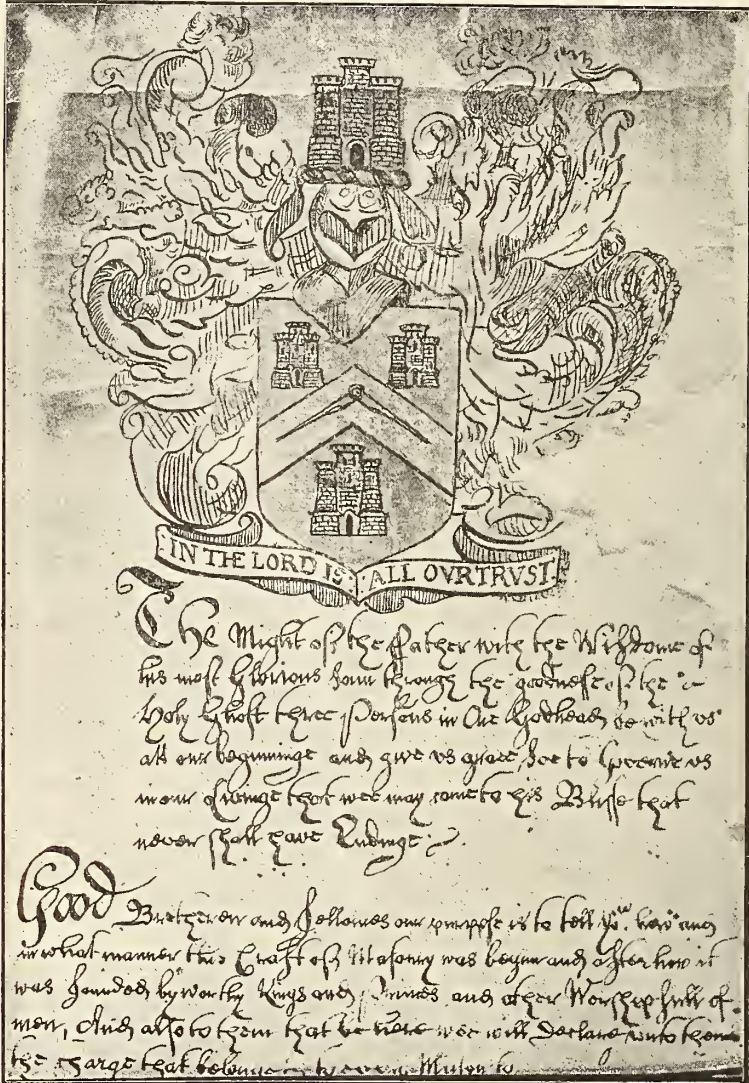 IN THE LORD IS ALL OVR TRVST.
The Might of the ffather with the Wisdome of
his most Glorious Sonn through the goodnesse of the
Holy Ghost three Persons in One Godhead be with us
att our beginninge and give vs grace soe to Governe vs
in our Livinge that wee may come to his Blisse that
never shall have Endinge
Good Bretheren and ffellowes our purpose is to tell yow how and
in what manner this Craft of Masonry was begun and after how it
was founded by worthy Kings and Princes and other Worshipfull
men, And also to them that be here wee will Declare unto them
the charge that belongs to